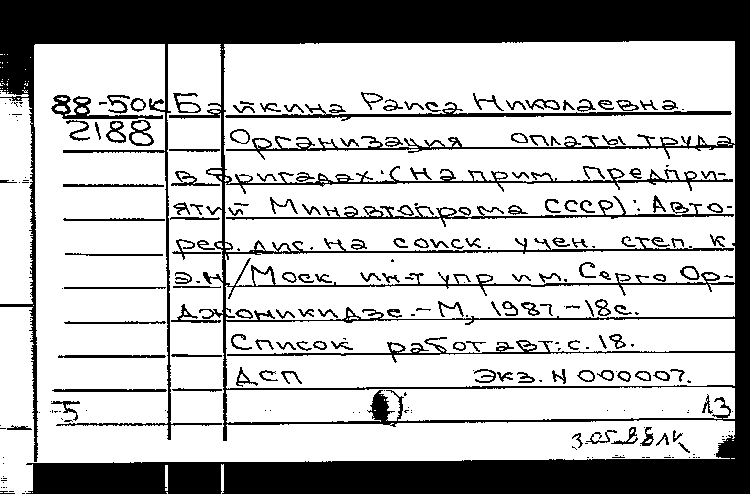 88-50к Байкина, Раиса Николаевна.
2188 Организация оплаты труда
в бригадах: (На прим. предпри-
ятий Минавтопрома СССР): Авто-
реф. дис. на соиск. учен. степ. к.
э.н. / Моск. ин-т упр им. Серго Ор-
джоникидзе. - М., 1987. - 18с.
Список работ авт: с. 18.
ДСП Экз. N 000007.
5 13